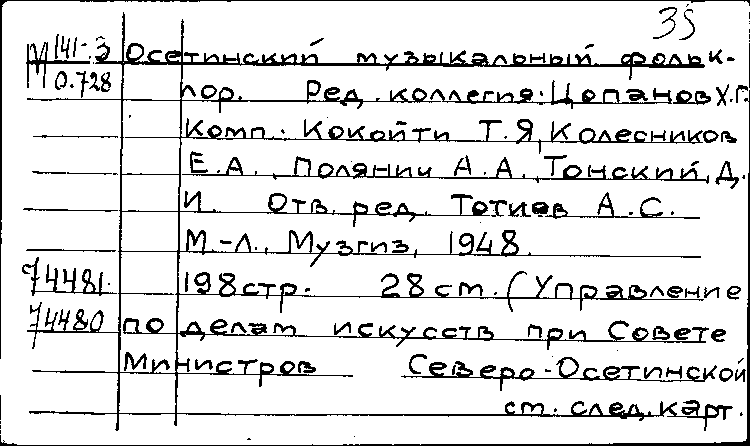 35
М 141-3 Осетинский музыкальный фольк-
0.728 лор. Ред. коллегия: Цопанов Х.Г.
Комп. Кокойти Т.Я, Колесников
Е.А., Полянич А.А., Тонский, Д.
И. Отв. ред. Тотиев А.С.
М.-Л., Музгиз, 1948.
74481. 198 стр. 28 ст. (Управление
74480 по делам искусств при Совете
Министров Северо-Осетинской
ст. след. карт.